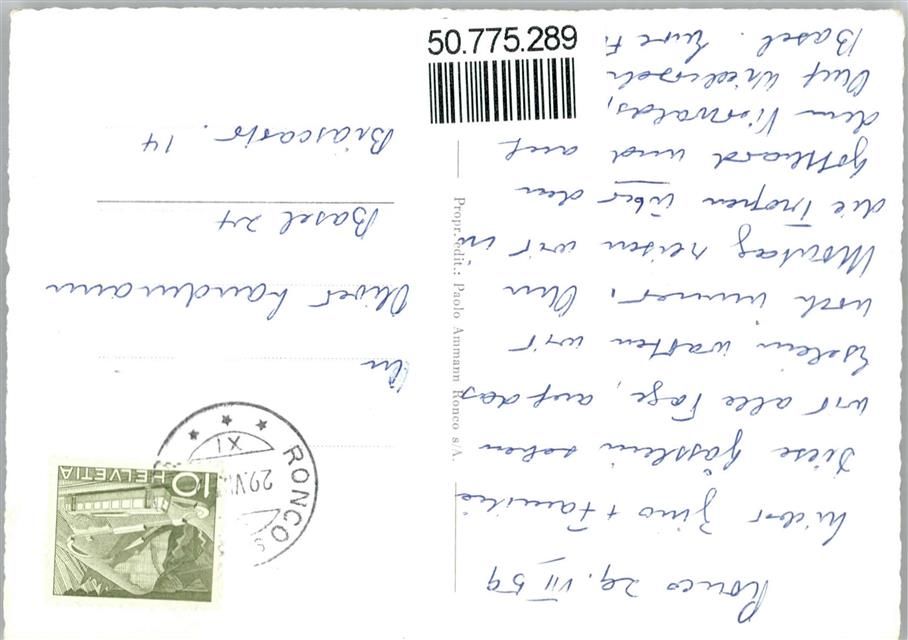 Ronco 29. VII 59
Lieber Gino + Familie
diese Gässlein sehen
wir alle Tage, auf das
Eselein warten wir
noch immer. Am
Montag reisen wir in
die Tropen über den
Gotthard und auf
dem Vierwalds,
Auf Wiedersehn
Basel. Eure F.
An
Oliver Landmann
Basel 24
Briascastr. 14
Propr. edit.: Paolo Ammann Ronco s/A.
HELVETIA
10
RONCO
29.VII
XI
50.775.289